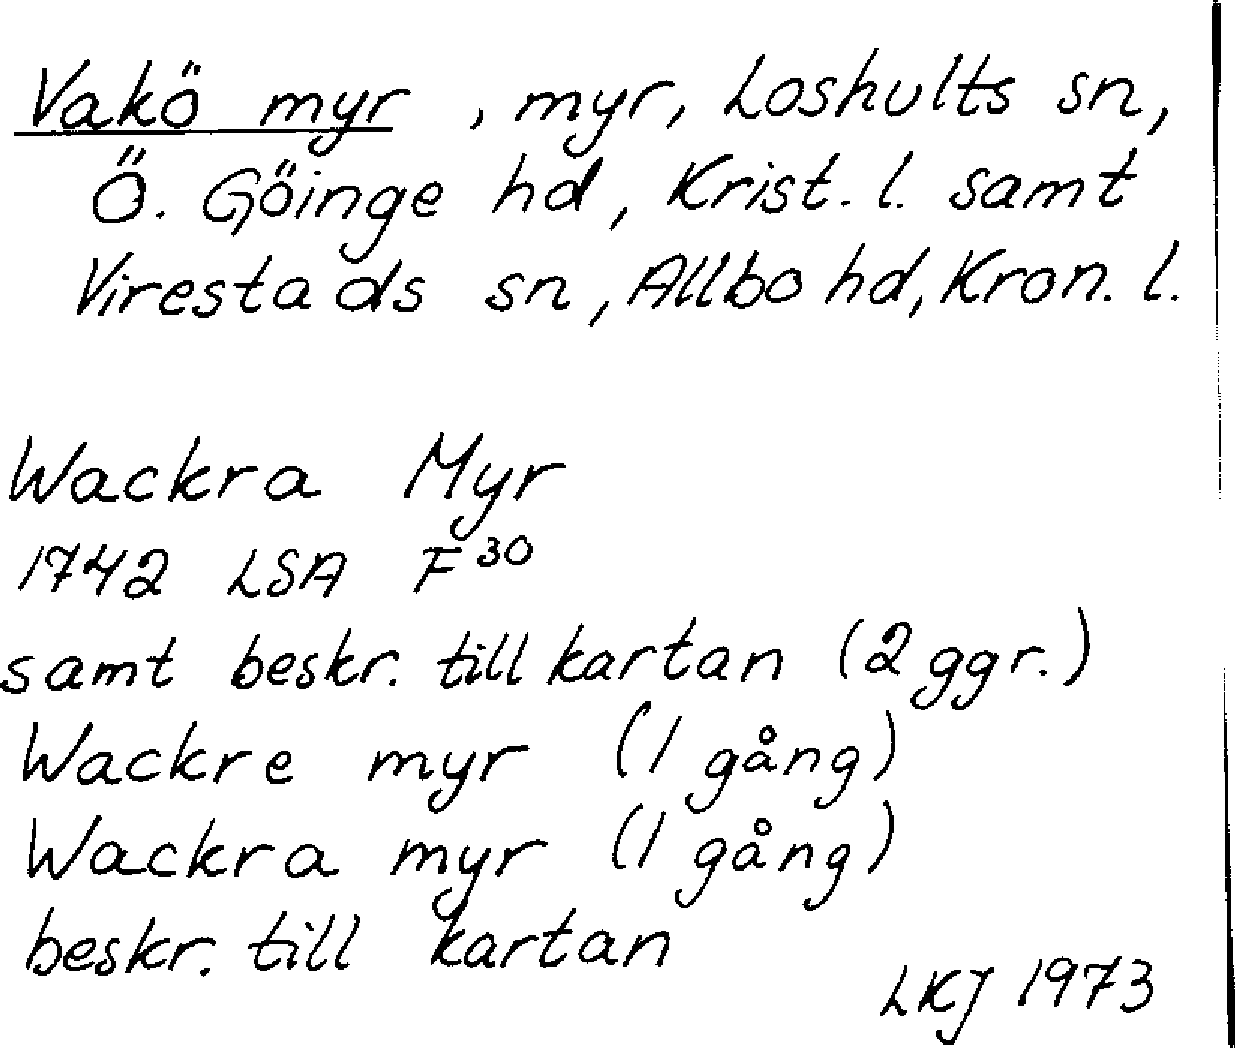 Vakö myr, myr, Loshults sn,
Ö. Göinge hd, Krist. l. samt
Virestads sn, Allbo hd, Kron. l.
Wackra Myr
1742 LSA F30
samt beskr. till kartan (2 ggr.)
Wackre myr (1 gång)
Wackra myr (1 gång)
beskr. till kartan
LKJ 1973